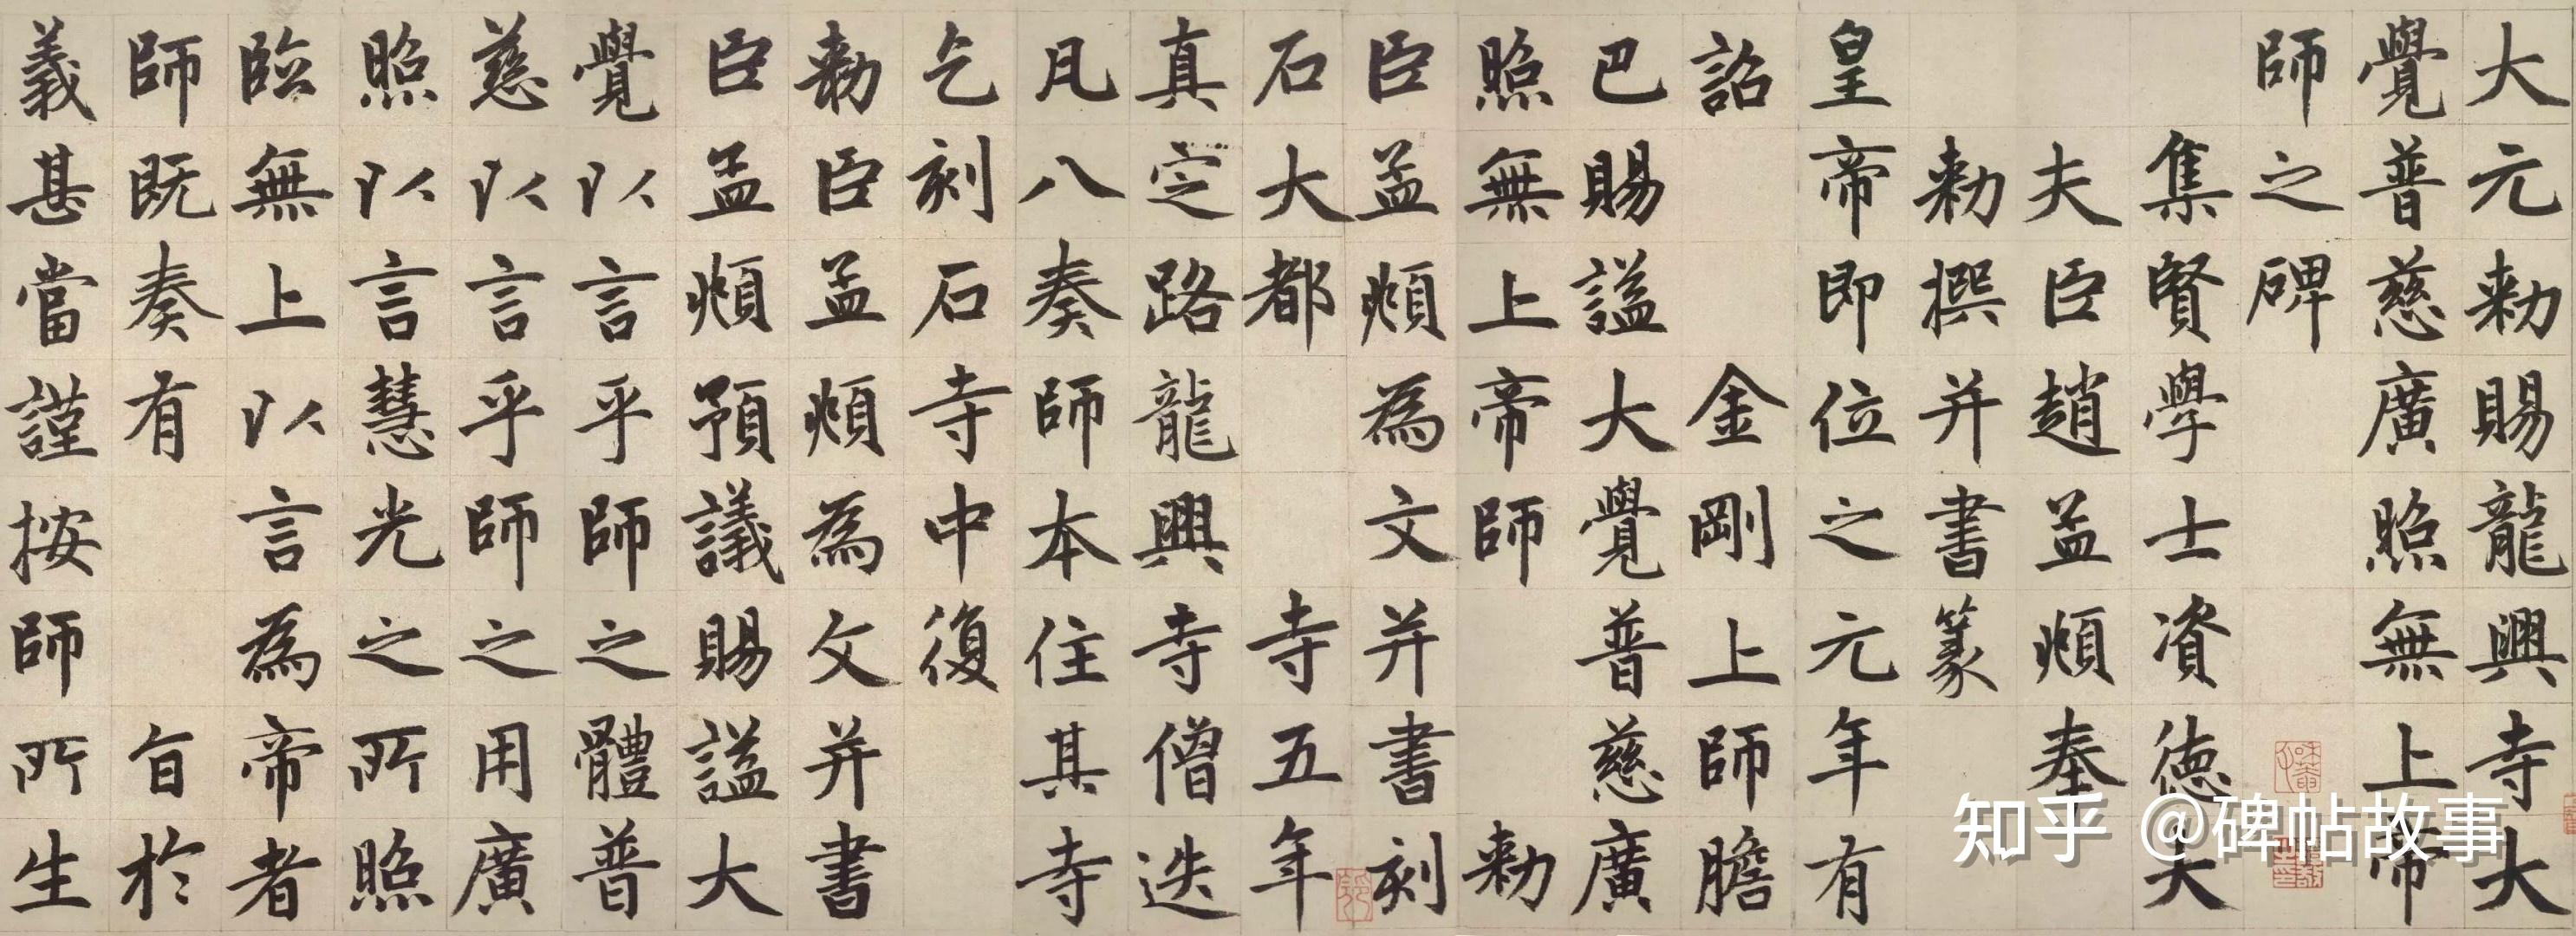 大元勑賜龍興寺大
覺普慈廣照無上帝
師之碑
集賢學士資德大
夫臣趙孟頫奉
勑撰并書篆
皇帝即位之元年有
詔金剛上師膽
巴賜謚大覺普慈廣
照無上帝師勑
臣孟頫為文并書刻
石大都寺五年
真定路龍興寺僧迭
凡八奏師本住其寺
乞刻石寺中復
勑臣孟頫為文并書
臣孟頫預議賜謚大
覺以言乎師之體普
慈以言乎師之用廣
照以言慧光之所照
臨無上以言為帝者
師既奏有旨於
義甚當謹按師所生
知乎 @碑帖故事